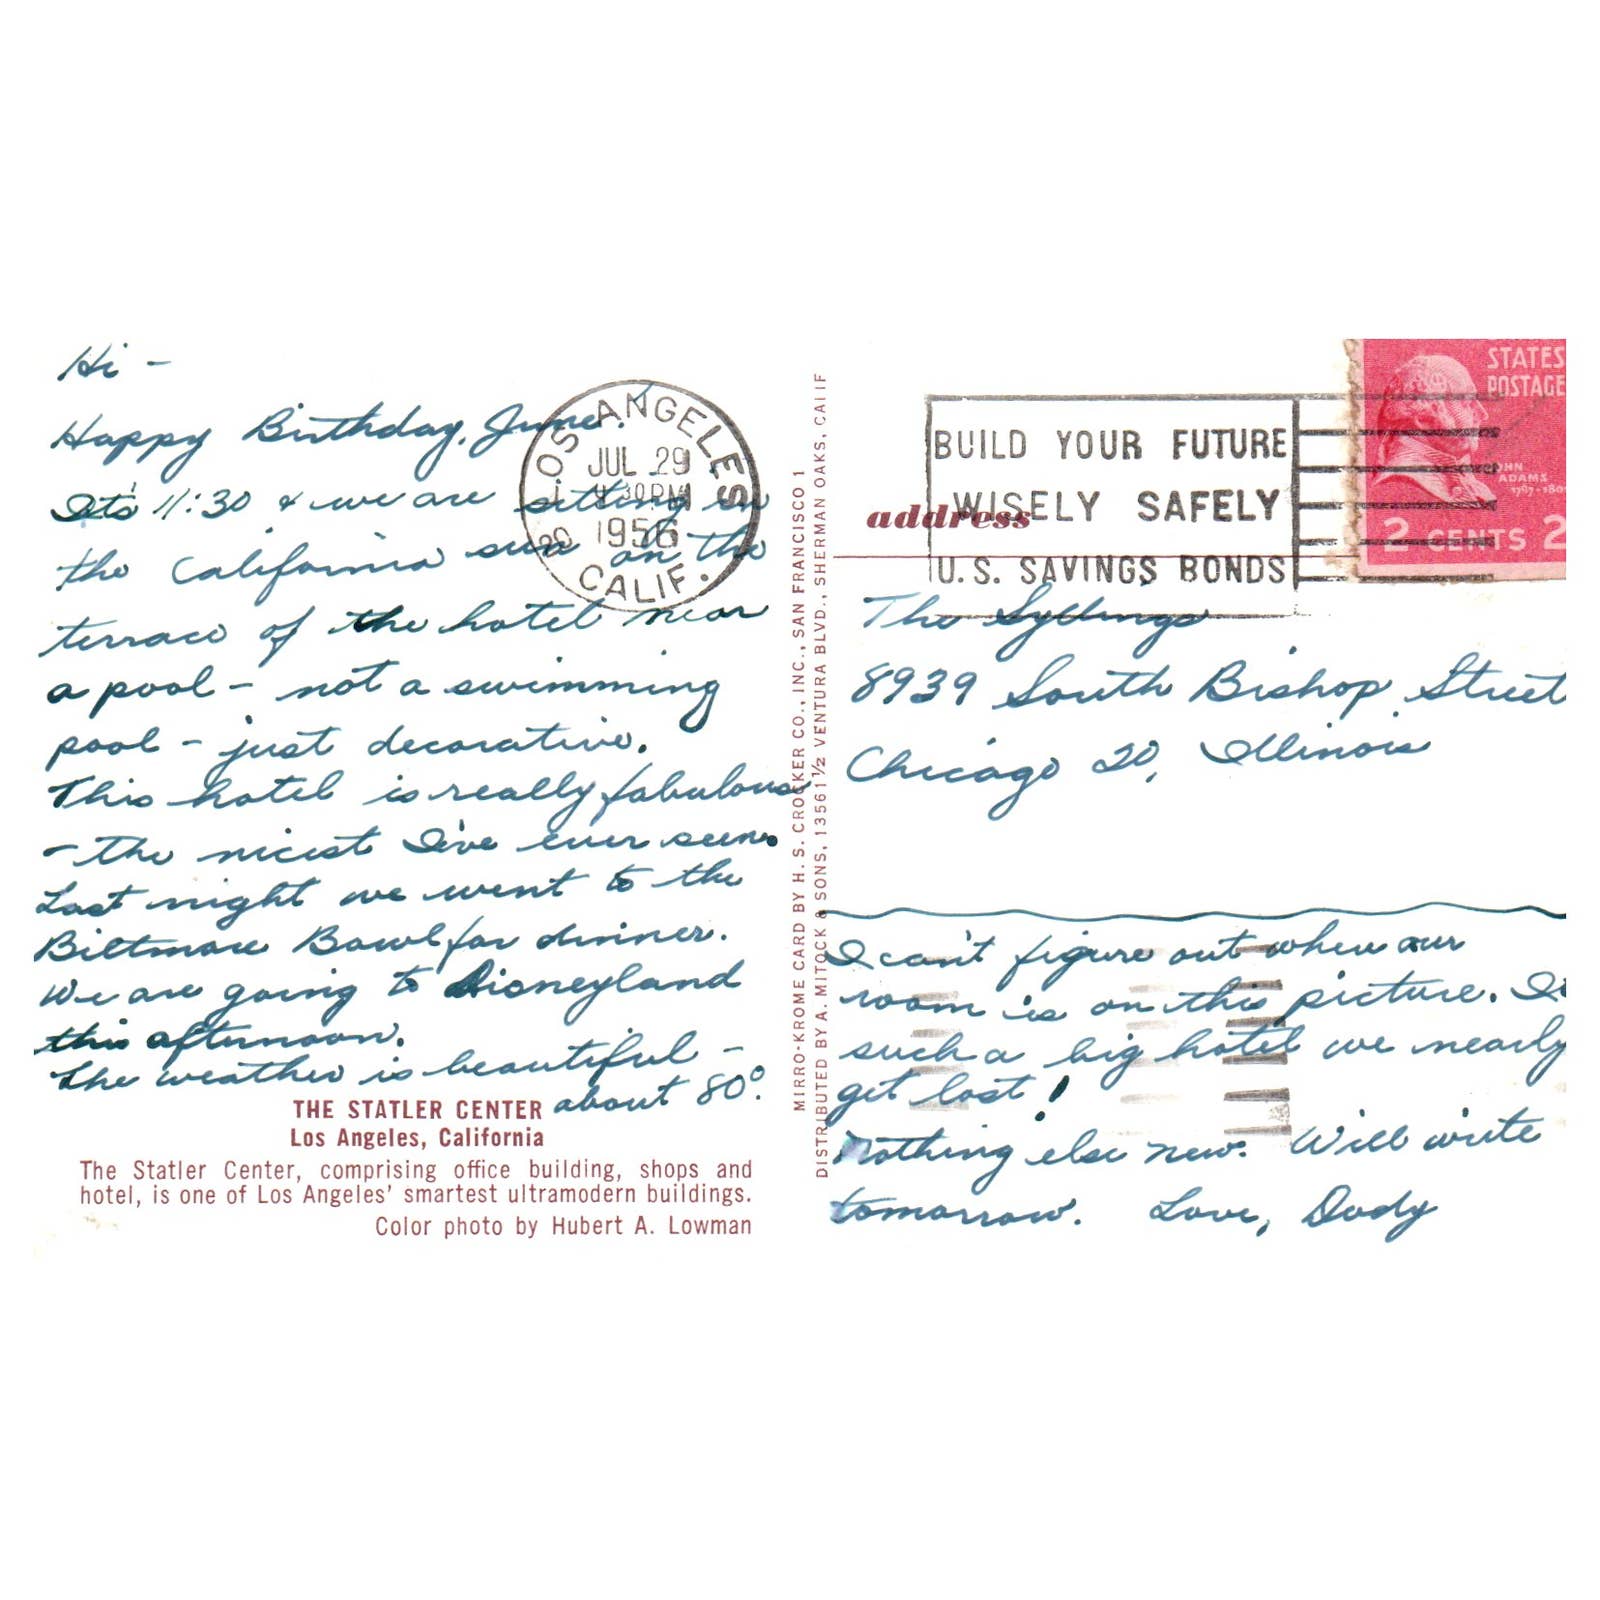 Hi -
Happy Birthday, June!
It's 11:30 & we are sitting in
the California sun on the
terrace of the hotel near
a pool - not a swimming
pool - just decorative.
This hotel is really fabulous
- the nicest I've ever seen.
Last night we went to the
Biltmore Bowl for dinner.
We are going to Disneyland
this afternoon.
The weather is beautiful -
about 80°.
THE STATLER CENTER
Los Angeles, California
The Statler Center, comprising office building, shops and
hotel, is one of Los Angeles' smartest ultramodern buildings.
Color photo by Hubert A. Lowman
LOS ANGELES
JUL 29
30 PM
1956
20
CALIF.
MIRRO-KROME CARD BY H. S. CROCKER CO., INC., SAN FRANCISCO 1
DISTRIBUTED BY A. MITOCK & SONS, 13561 1/2 VENTURA BLVD., SHERMAN OAKS, CALIF
BUILD YOUR FUTURE
WISELY SAFELY
U.S. SAVINGS BONDS
address
STATES
POSTAGE
JOHN
ADAMS
1797-180
2 CENTS 2
The Syllings
8939 South Bishop Street
Chicago 20, Illinois
I can't figure out where our
room is on this picture. It
such a big hotel we nearly
get lost!
Nothing else new. Will write
tomorrow. Love, Dody